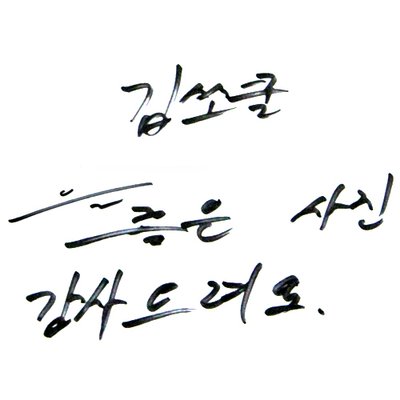 김쏘쿨
좋은 사진
감사드려요.